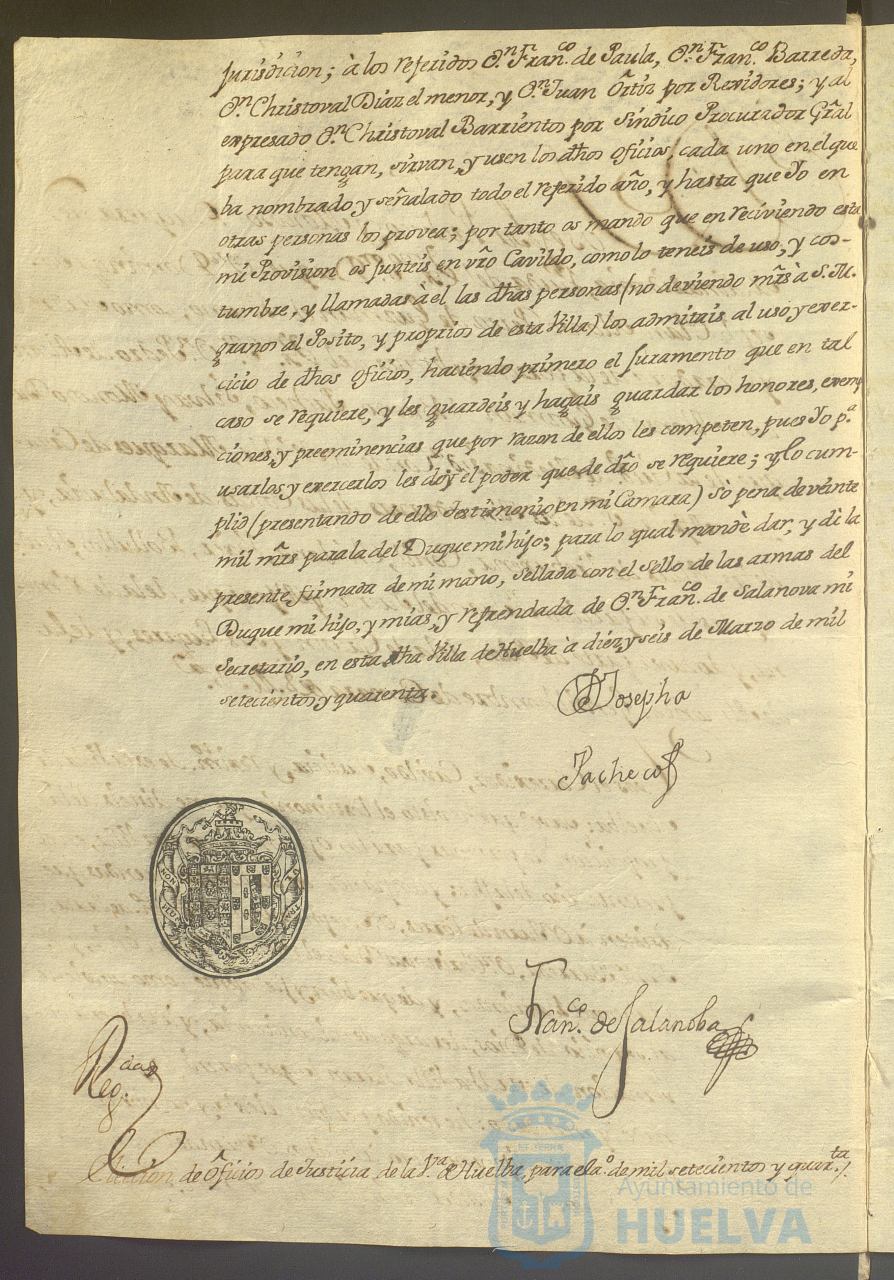 jurisdicion; à los referidos Dn. Franco. de Paula, Dn. Franco. Barreda,
Dn. Christoval Diaz el menor, y Dn. Juan Ortiz por Rexidores; y al
expresado Dn. Christoval Barrientos por Sindico Procurador Gral
para que tengan, sirvan, y usen los dhos oficios, cada uno en el que
ba nombrado y señalado todo el referido año, y hasta que Yo en
otras personas los provea; por tanto os mando que en reciviendo esta
mi Provision os junteis en vro Cavildo, como lo teneis de uso, y cos-
tumbre, y llamadas à el las dhas personas (no deviendo mrs à S. M.
granos al Posito, y proprios de esta Villa) los admitais al uso y exer-
cicio de dhos oficios, haciendo primero el Juramento que en tal
caso se requiere, y les guardeis y hagais guardar los honores, exemp
ciones, y preeminencias que por razon de ellos les competen, pues Yo pa.
usarlos y exercerlos les doy el poder que de dro se requiere; y lo cum-
plid (presentando de ello testimonio en mi Camara) sò pena de veinte
mil mrs para la del Duque mi hijo; para lo qual mandè dar, y di la
presente firmada de mi mano, sellada con el sello de las armas del
Duque mi hijo, y mias, y refrendada de Dn. Franco. de Salanova mi
Secretario, en esta dha Villa de Huelba à diez y seis de Marzo de mil
setecientos y quarenta
Josepha
Pacheco
NON
PLUS
Franco. de Salanoba
Regdas
Eleccion de Oficios de Justicia de la Va. de Huelba, para el ao. de mil setecientos y quarta.
Ayuntamiento de
HUELVA